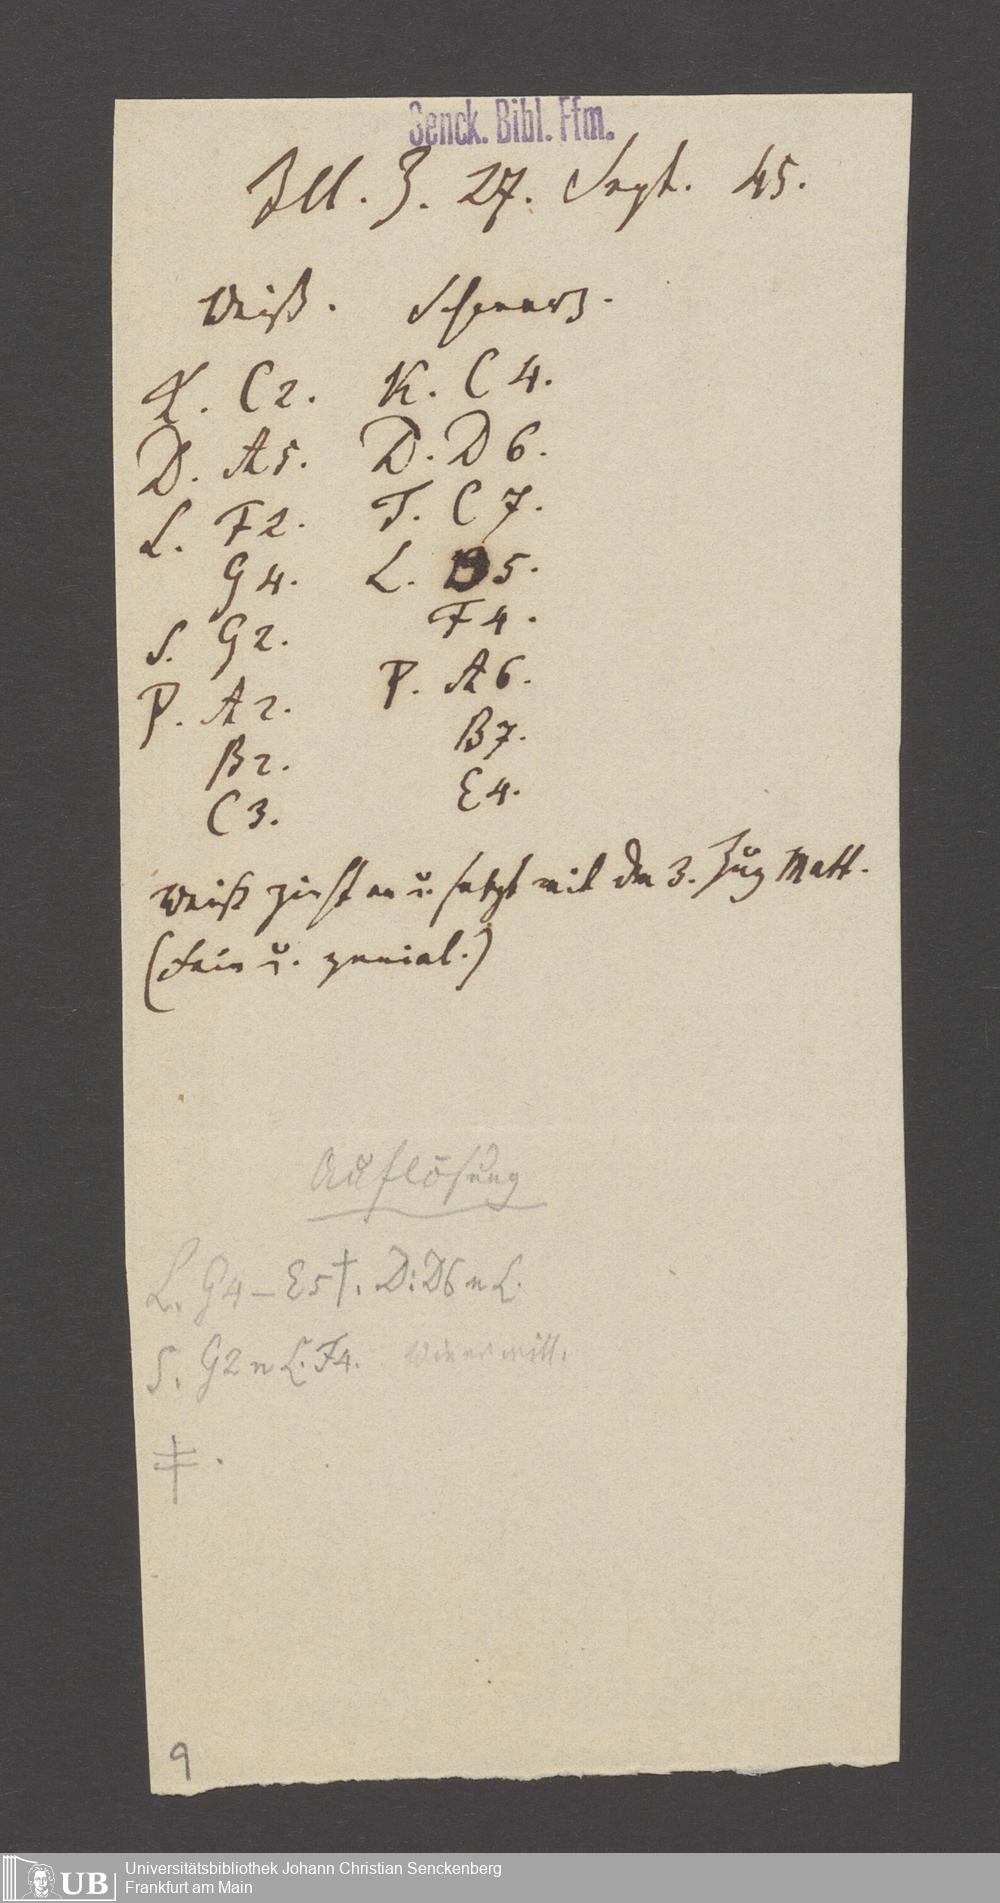 Senck. Bibl. Ffm.
Ill. Z. 27. Sept. 45.
Weiß. Schwarz.
K. C2. K. C4.
D. A5. D. D6.
L. F2. T. C7.
G4. L. B5.
S. G2. F4.
P. A2. P. A6.
B2. B7.
C3. E4.
Weiß zieht an u. setzt mit dem 3. Zug Matt.
(Fein u. genial.)
Auflösung
L. G4 – E5†. D: D6 n L.
S. G2 n L. F4. Wie er will.
‡.
9
UB
Universitätsbibliothek Johann Christian Senckenberg
Frankfurt am Main